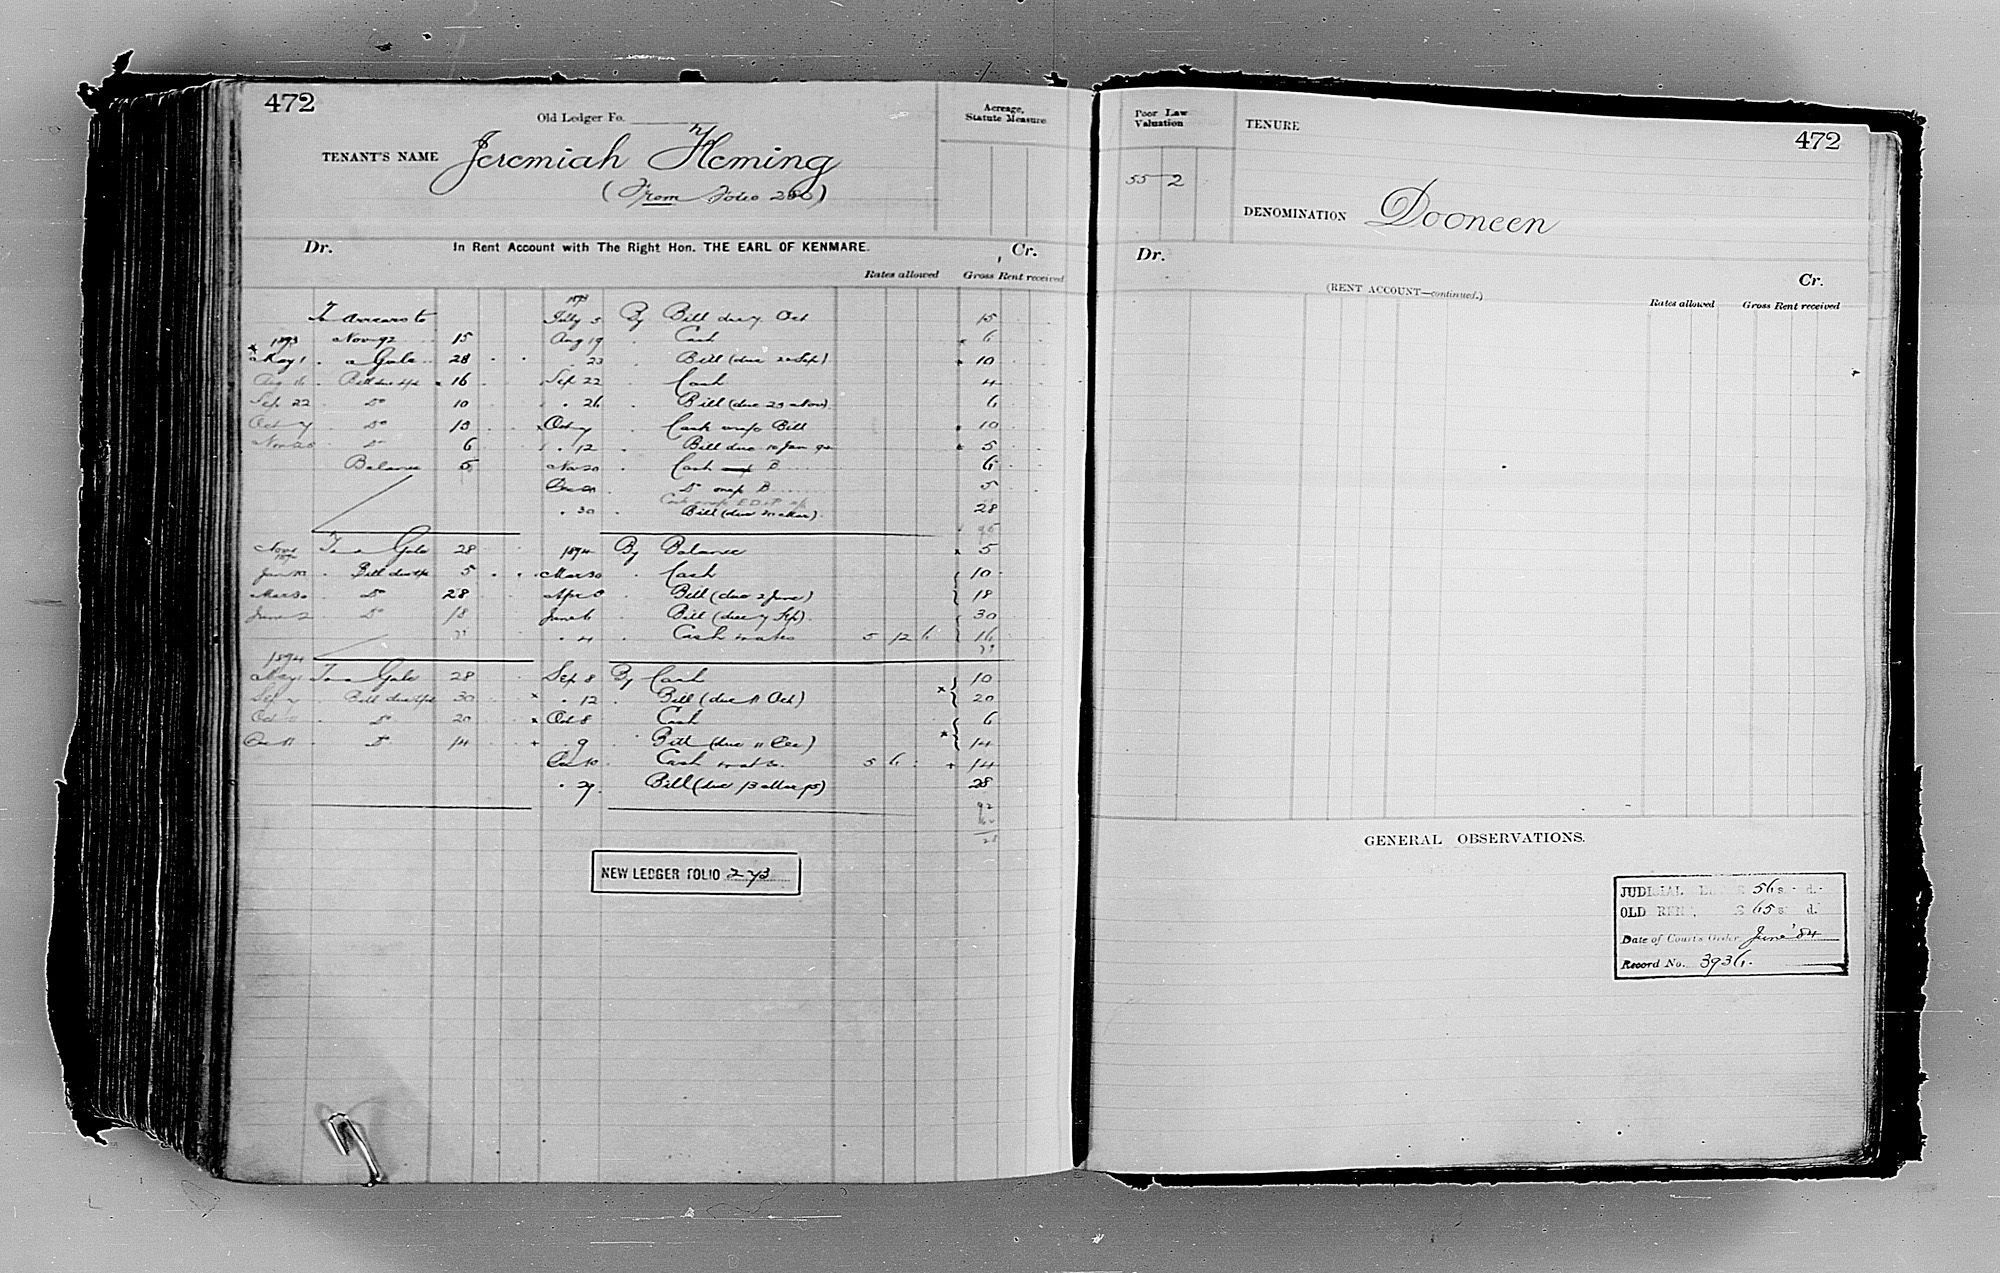 472
Old Ledger Fo.
Acreage, Statute Measure
TENANT'S NAME Jeremiah Fleming
(From Folio 280)
Dr. In Rent Account with The Right Hon. THE EARL OF KENMARE. Cr.
Rates allowed Gross Rent received
1893
To arrears to July 5 By Bill due 7 Oct 15
1893 Nov 92 15 Aug 19 Cash 6
May 1 a Gale 28 23 Bill (due 20 Sep) 10
Aug 16 Bill due 16 Sep 22 Cash 4
Sep 22 Do 10 26 Bill (due 23 Nov) 6
Oct 7 Do 15 Oct 7 Cash Bill 10
Nov Do 6 12 Bill due 10 Jan 94 5
Balance 5 Nov 20 Cash B 6
Do B 5
30 Bill (due Mar) 28
Nov 1 To a Gale 28 1894 By Balance 5
Jan 10 Bill due 5 Mar 30 Cash 10
Mar 30 Do 28 Apr Bill (due 2 June) 18
June 2 Do 18 June 6 Bill (due 7 Sep) 30
4 Cash 5 12 6 16
1894
May 1 To a Gale 28 Sep 8 By Cash 10
Sep 7 Bill due 30 12 Bill (due 11 Oct) 20
Oct 11 Do 20 Oct 8 Cash 6
Dec 11 Do 14 9 Bill (due 11 Dec) 14
Dec 10 Cash 5 6 14
29 Bill (due 13 Mar 95) 28
92
NEW LEDGER FOLIO 273
Poor Law Valuation
TENURE
472
55 2
DENOMINATION Dooneen
Dr.
Cr.
(RENT ACCOUNT—continued.)
Rates allowed Gross Rent received
GENERAL OBSERVATIONS.
JUDICIAL 56 s. d.
OLD RENT, £ 65 s. d.
Date of Court's Order June '84
Record No. 3936.